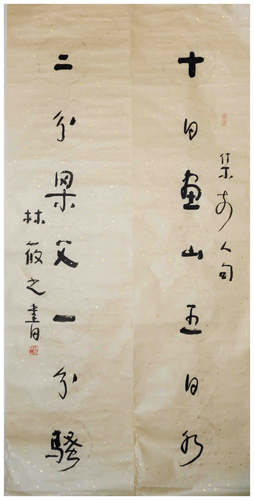 十日画山五日水
集前人句
二分梁父一分骚
林筱之书